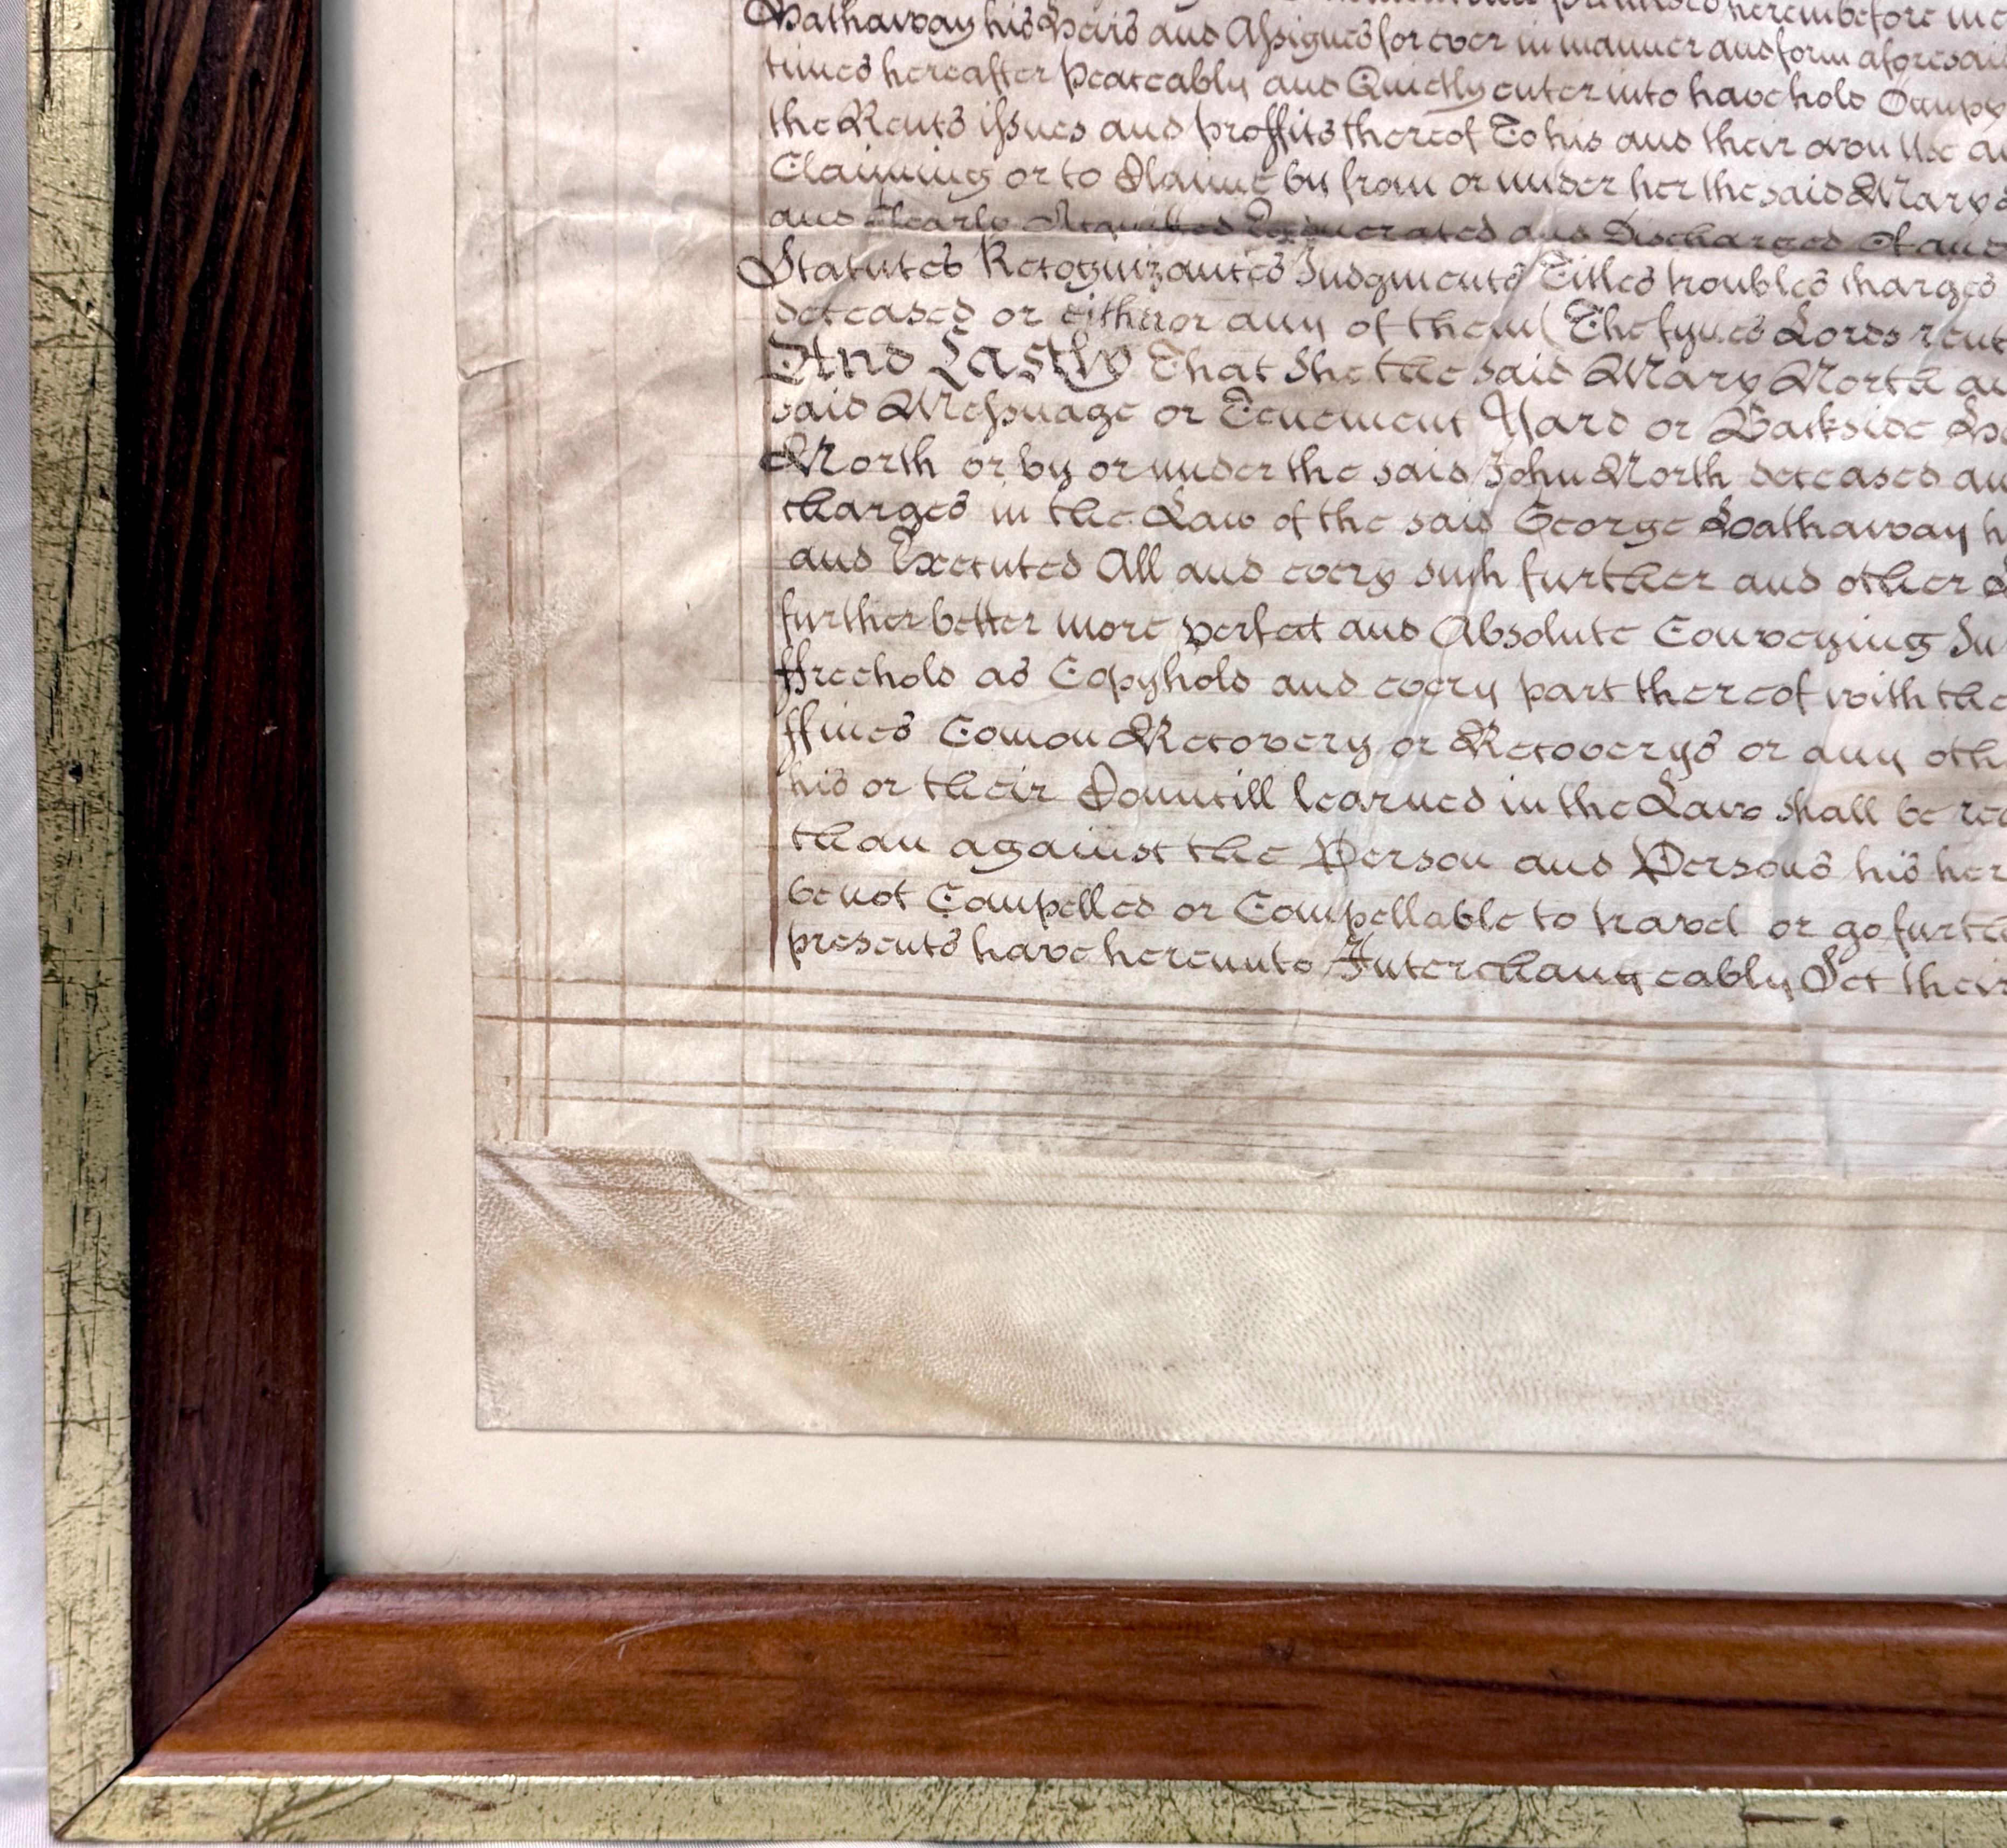 Hathaway his Heirs and Assignes for ever in manner and form aforesaid
times hereafter peaceably and Quietly enter into have hold Occupy
the Rents issues and proffits thereof To his and their own Use
Claiming or to Claime by from or under her the said Mary
and Clearly Acquitted Exonerated and Discharged Of and
Statutes Recognizances Judgments Titles troubles charges
deceased or either or any of them (The fynes Lords rent
And Lastly That She the said Mary North
said Messuage or Tenement Yard or Backside
North or by or under the said John North deceased
charges in the Law of the said George Hathaway
and Executed All and every such further and other
further better more perfect and Absolute Conveying
ffreehold as Copyhold and every part thereof with the
ffines Comon Recovery or Recoverys or any
his or their Councill learned in the Law shall be
than against the Person and Persons his her
be not Compelled or Compellable to travel or go
presents have hereunto Interchangeably Set their